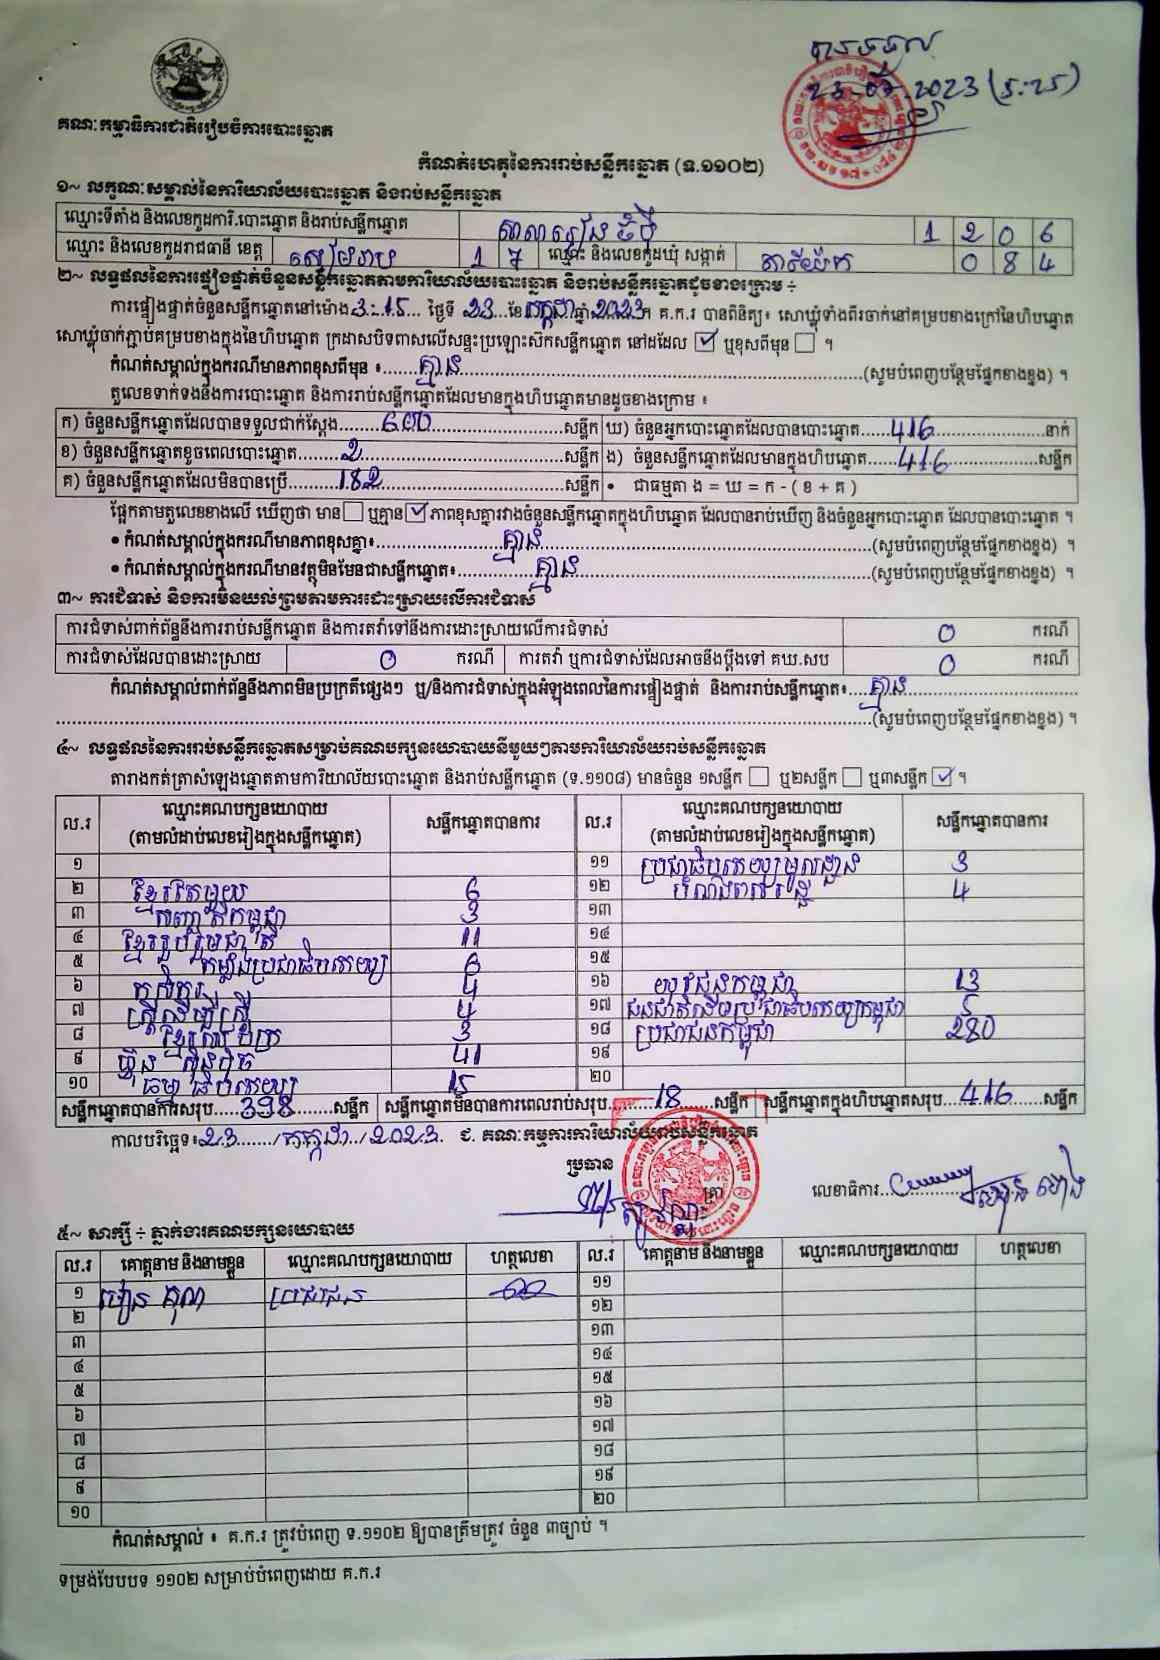 បានទទួល
23-07-2023 (5:25)
គណៈកម្មាធិការជាតិរៀបចំការបោះឆ្នោត
កំណត់ហេតុនៃការរាប់សន្លឹកឆ្នោត (ទ.១១០២)
១~ លក្ខណៈសម្គាល់នៃការិយាល័យបោះឆ្នោត និងរាប់សន្លឹកឆ្នោត
ឈ្មោះទីតាំង និងលេខកូដការិ.បោះឆ្នោត និងរាប់សន្លឹកឆ្នោត សាលារៀន 1 2 0 6
ឈ្មោះ និងលេខកូដរាជធានី ខេត្ត សៀមរាប 1 7 ឈ្មោះ និងលេខកូដឃុំ សង្កាត់ 0 8 4
២~ លទ្ធផលនៃការផ្ទៀងផ្ទាត់ចំនួនសន្លឹកឆ្នោតតាមការិយាល័យបោះឆ្នោត និងរាប់សន្លឹកឆ្នោតដូចខាងក្រោម ÷
ការផ្ទៀងផ្ទាត់ចំនួនសន្លឹកឆ្នោតនៅម៉ោង 3:15 ថ្ងៃទី 23 ខែ កក្កដា ឆ្នាំ 2023 ។ គ.ក.រ បានពិនិត្យ៖ សោឃ្មុំទាំងពីរចាក់នៅគម្របខាងក្រៅនៃហិបឆ្នោត
សោឃ្មុំចាក់ភ្ជាប់គម្របខាងក្នុងនៃហិបឆ្នោត ក្រដាសបិទពាសលើសន្ទះប្រឡោះស៊កសន្លឹកឆ្នោត នៅដដែល ☑ ឬខុសពីមុន ☐ ។
កំណត់សម្គាល់ក្នុងករណីមានភាពខុសពីមុន ៖ គ្មាន (សូមបំពេញបន្ថែមផ្នែកខាងខ្នង) ។
តួលេខទាក់ទងនឹងការបោះឆ្នោត និងការរាប់សន្លឹកឆ្នោតដែលមានក្នុងហិបឆ្នោតមានដូចខាងក្រោម ៖
ក) ចំនួនសន្លឹកឆ្នោតដែលបានទទួលជាក់ស្តែង 600 សន្លឹក ឃ) ចំនួនអ្នកបោះឆ្នោតដែលបានបោះឆ្នោត 416 នាក់
ខ) ចំនួនសន្លឹកឆ្នោតខូចពេលបោះឆ្នោត 2 សន្លឹក ង) ចំនួនសន្លឹកឆ្នោតដែលមានក្នុងហិបឆ្នោត 416 សន្លឹក
គ) ចំនួនសន្លឹកឆ្នោតដែលមិនបានប្រើ 182 សន្លឹក • ជាធម្មតា ង = ឃ = ក - ( ខ + គ )
ផ្អែកតាមតួលេខខាងលើ ឃើញថា មាន ☐ ឬគ្មាន ☑ ភាពខុសគ្នារវាងចំនួនសន្លឹកឆ្នោតក្នុងហិបឆ្នោត ដែលបានរាប់ឃើញ និងចំនួនអ្នកបោះឆ្នោត ដែលបានបោះឆ្នោត ។
• កំណត់សម្គាល់ក្នុងករណីមានភាពខុសគ្នា៖ គ្មាន (សូមបំពេញបន្ថែមផ្នែកខាងខ្នង) ។
• កំណត់សម្គាល់ក្នុងករណីមានវត្ថុមិនមែនជាសន្លឹកឆ្នោត៖ គ្មាន (សូមបំពេញបន្ថែមផ្នែកខាងខ្នង) ។
៣~ ការជំទាស់ និងការមិនយល់ព្រមតាមការដោះស្រាយលើការជំទាស់
ការជំទាស់ពាក់ព័ន្ធនឹងការរាប់សន្លឹកឆ្នោត និងការតវ៉ាទៅនឹងការដោះស្រាយលើការជំទាស់ 0 ករណី
ការជំទាស់ដែលបានដោះស្រាយ 0 ករណី ការតវ៉ា ឬការជំទាស់ដែលអាចនឹងប្តឹងទៅ គឃ.សប 0 ករណី
កំណត់សម្គាល់ពាក់ព័ន្ធនឹងភាពមិនប្រក្រតីផ្សេងៗ ឬ/និងការជំទាស់ក្នុងអំឡុងពេលនៃការផ្ទៀងផ្ទាត់ និងការរាប់សន្លឹកឆ្នោត៖ គ្មាន
(សូមបំពេញបន្ថែមផ្នែកខាងខ្នង) ។
៤~ លទ្ធផលនៃការរាប់សន្លឹកឆ្នោតសម្រាប់គណបក្សនយោបាយនីមួយៗតាមការិយាល័យរាប់សន្លឹកឆ្នោត
តារាងកត់ត្រាសំឡេងឆ្នោតតាមការិយាល័យបោះឆ្នោត និងរាប់សន្លឹកឆ្នោត (ទ.១១០៨) មានចំនួន ១សន្លឹក ☐ ឬ២សន្លឹក ☐ ឬ៣សន្លឹក ☑ ។
ល.រ ឈ្មោះគណបក្សនយោបាយ (តាមលំដាប់លេខរៀងក្នុងសន្លឹកឆ្នោត) សន្លឹកឆ្នោតបានការ ល.រ ឈ្មោះគណបក្សនយោបាយ (តាមលំដាប់លេខរៀងក្នុងសន្លឹកឆ្នោត) សន្លឹកឆ្នោតបានការ
១ ១១ ប្រជាធិបតេយ្យមូលដ្ឋាន 3
២ ខ្មែរតែមួយ 6 ១២ 4
៣ កម្ពុជា 3 ១៣
៤ ខ្មែររួបរួមជាតិ 11 ១៤
៥ កម្លាំងប្រជាធិបតេយ្យ 6 ១៥
៦ កសិករ 4 ១៦ យុវជនកម្ពុជា 13
៧ ស្ត្រីដើម្បីស្ត្រី 4 ១៧ ជនជាតិដើមប្រជាធិបតេយ្យកម្ពុជា 5
៨ ខ្មែរអភិរក្ស 3 ១៨ ប្រជាជនកម្ពុជា 280
៩ ហ៊្វុនស៊ិនប៉ិច 41 ១៩
១០ ធម្មាធិបតេយ្យ 15 ២០
សន្លឹកឆ្នោតបានការសរុប 398 សន្លឹក សន្លឹកឆ្នោតមិនបានការពេលរាប់សរុប 18 សន្លឹក សន្លឹកឆ្នោតក្នុងហិបឆ្នោតសរុប 416 សន្លឹក
កាលបរិច្ឆេទ៖ 23 / កក្កដា / 2023. ជ. គណៈកម្មការការិយាល័យរាប់សន្លឹកឆ្នោត
ប្រធាន
ត្រា លេខាធិការ
៥~ សាក្សី ÷ ភ្នាក់ងារគណបក្សនយោបាយ
ល.រ គោត្តនាម និងនាមខ្លួន ឈ្មោះគណបក្សនយោបាយ ហត្ថលេខា ល.រ គោត្តនាម និងនាមខ្លួន ឈ្មោះគណបក្សនយោបាយ ហត្ថលេខា
១ ប្រជាជន ១១
២ ១២
៣ ១៣
៤ ១៤
៥ ១៥
៦ ១៦
៧ ១៧
៨ ១៨
៩ ១៩
១០ ២០
កំណត់សម្គាល់ ៖ គ.ក.រ ត្រូវបំពេញ ទ.១១០២ ឱ្យបានត្រឹមត្រូវ ចំនួន ៣ច្បាប់ ។
ទម្រង់បែបបទ ១១០២ សម្រាប់បំពេញដោយ គ.ក.រ